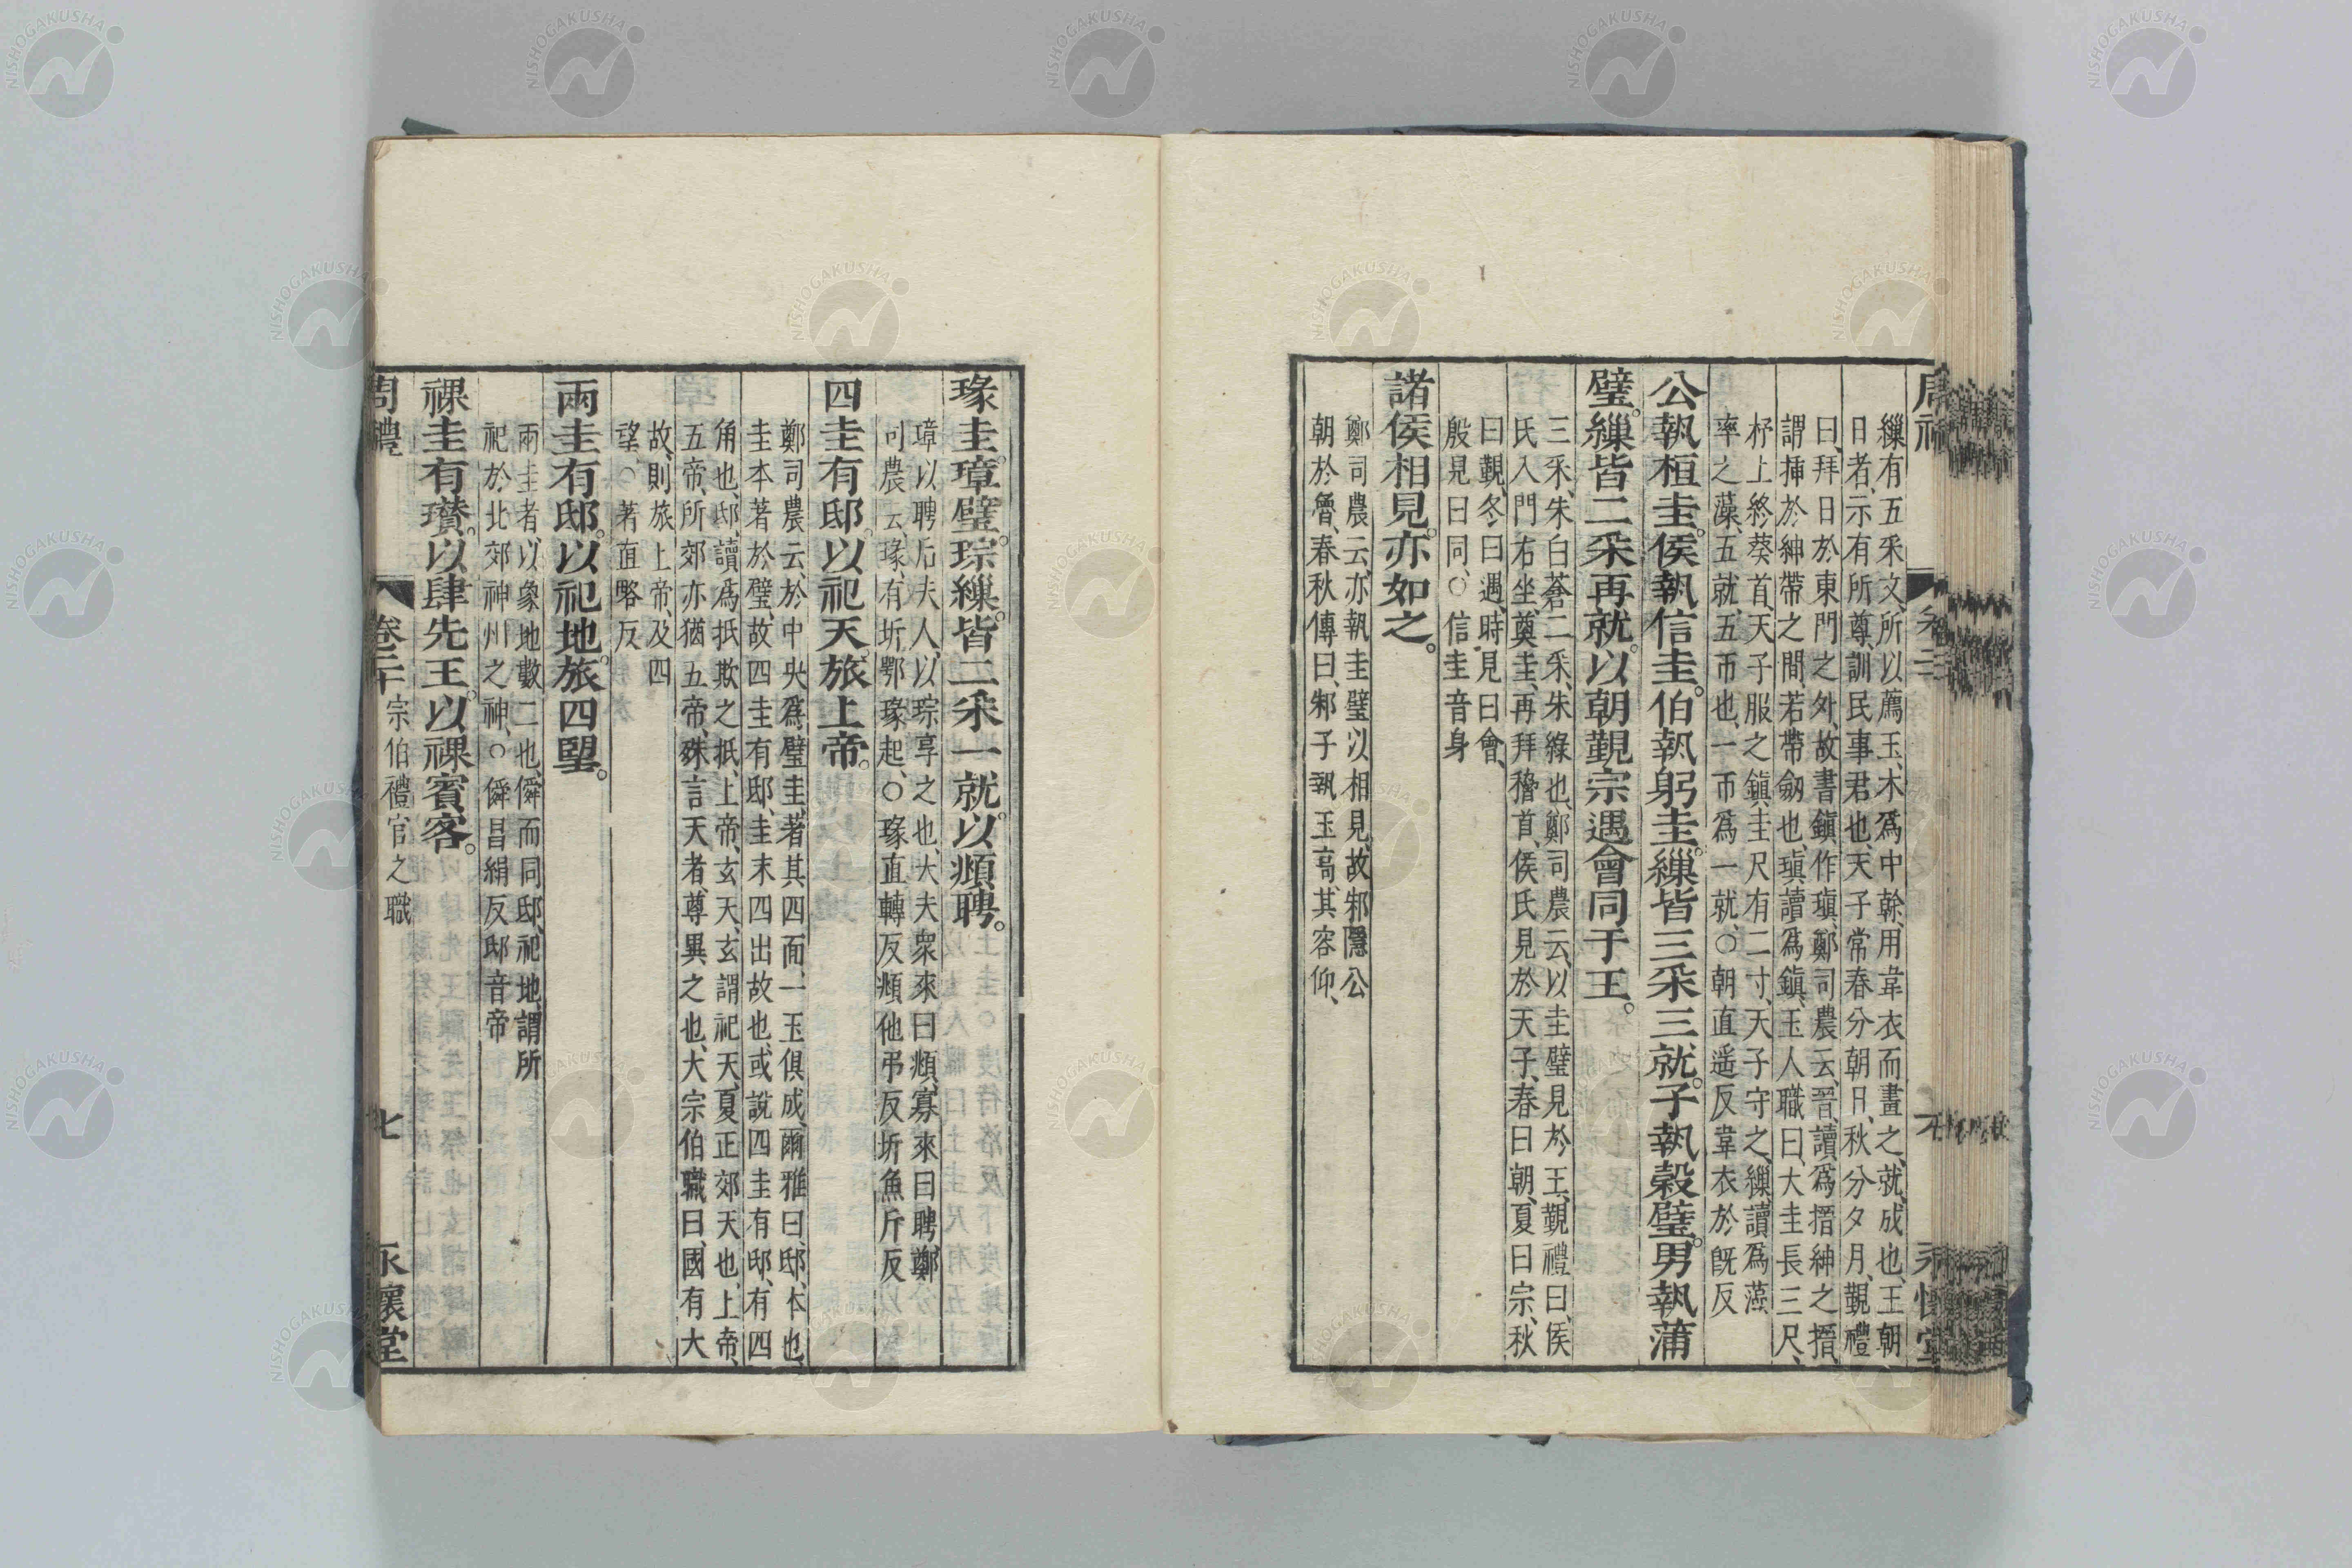 繅有五采文所以薦玉、木爲中榦、用韋衣而畫之、就、成也、王朝
日者、示有所尊、訓民事君也、天子常春分朝日、秋分夕月、覲禮
曰、拜日於東門之外、故書鎮作瑱、鄭司農云、晉、讀爲搢紳之搢、
謂揷於紳帶之間、若帶劒也、瑱讀爲鎮、玉人職曰、大圭長三尺、
杼上終葵首、天子服之、鎮圭尺有二寸、天子守之、繅、讀爲藻
率之藻、五就、五帀也、一帀爲一就、○朝直遥反韋衣於旣反
公執桓圭。侯執信圭。伯執躬圭。繅皆三采三就。子執穀璧。男執蒲
璧。繅皆二采再就。以朝覲宗遇會同于王。
三采、朱白蒼、二采、朱綠也、鄭司農云、以圭璧見於王、覲禮曰、侯
氏入門右坐、奠圭、再拜稽首、侯氏見於天子、春曰朝、夏曰宗、秋
曰覲、冬曰遇、時見曰會、
殷見曰同、○信圭音身
諸侯相見。亦如之。
鄭司農云、亦執圭璧以相見、故邾隱公
朝於魯、春秋傳曰、邾子執玉高、其容仰、
瑑圭。璋璧。琮繅。皆二采一就。以頫聘。
璋以聘后夫人、以琮享之也、大夫衆來曰頫、寡來曰聘、鄭
司農云、瑑、有圻鄂瑑起、○瑑直轉反頫他弔反圻魚斤反
四圭有邸。以祀天。旅上帝。
鄭司農云、於中央爲璧、圭著其四面、一玉俱成、爾雅曰、邸、本也、
圭本著於璧、故四圭有邸、圭末四出故也、或說四圭有邸、有四
角也、邸、讀爲抵欺之抵、上帝、玄天、玄謂祀天、夏正郊天也、上帝、
五帝、所郊亦猶五帝、殊言天者、尊異之也、大宗伯職曰、國有大
故、則旅上帝、及四
望、○著直略反
兩圭有邸。以祀地。旅四望。
兩圭者、以象地數二也、僢而同邸、祀地、謂所
祀於北郊神州之神、○僢昌絹反邸音帝
祼圭有瓚。以肆先王。以祼賓客。
周禮 卷二十 宗伯禮官之職 七 永懷堂